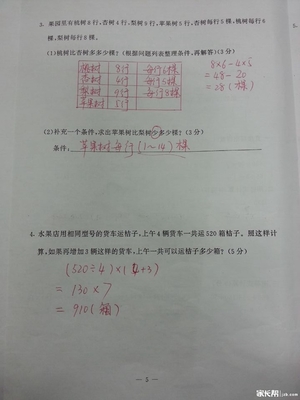 3. 果园里有桃树8行,杏树4行,梨树9行,苹果树5行,杏树每行5棵,桃树每行6
棵,梨树每行8棵。
(1)桃树比杏树多多少棵?(根据问题列表整理条件,再解答)(3分)
桃树 8行 每行6棵
杏树 4行 每行5棵
梨树 9行 每行8棵
苹果树 5行
8×6-4×5
=48-20
=28(棵)
(2)补充一个条件,求出苹果树比梨树少多少棵?(3分)
条件: 苹果树每行(1~14)棵
4. 水果店用相同型号的货车运桔子,上午4辆货车一共运520箱桔子。照这样计
算,如果再增加3辆这样的货车,上午一共可以运桔子多少箱?(5分)
(520÷4)×(4+3)
= 130×7
= 910(箱)
— 5 —
家长帮
jzb.com